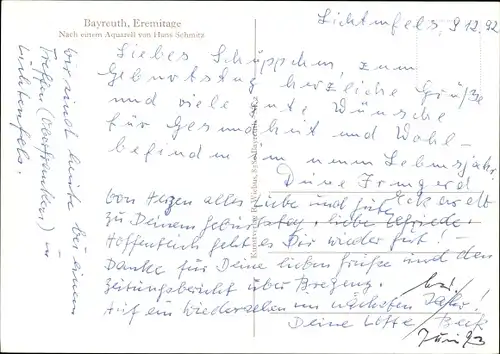 Bayreuth, Eremitage
Nach einem Aquarell von Hans Schmitz
Lichtenfels, 9.12.92
Liebes Schüppchen, zum
Geburtstag herzliche Grüße
und viele gute Wünsche
für Gesundheit und Wohl-
befinden im neuen Lebensjahr.
Deine Irmgard
Von Herzen alles Liebe und Gute
zu Deinem Geburtstag, liebe Elfriede.
Hoffentlich geht es Dir wieder gut! –
Danke für Deine lieben Grüße und den
Zeitungsbericht über Bregenz.
Auf ein Wiedersehen im nächsten Jahr!
Deine Lotte Beck
Juni 93
Wir sind heute bei einem
Treffen (Oberfranken) in
Lichtenfels.